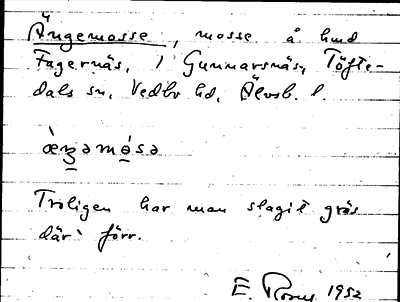 Ängemosse, mosse å hmd
Fagernäs, i Gunnarsnäs, Töfte-
dals sn, Vedbo hd, Älvsb. l.
Troligen har man slagit gräs
där förr.
E. 1952